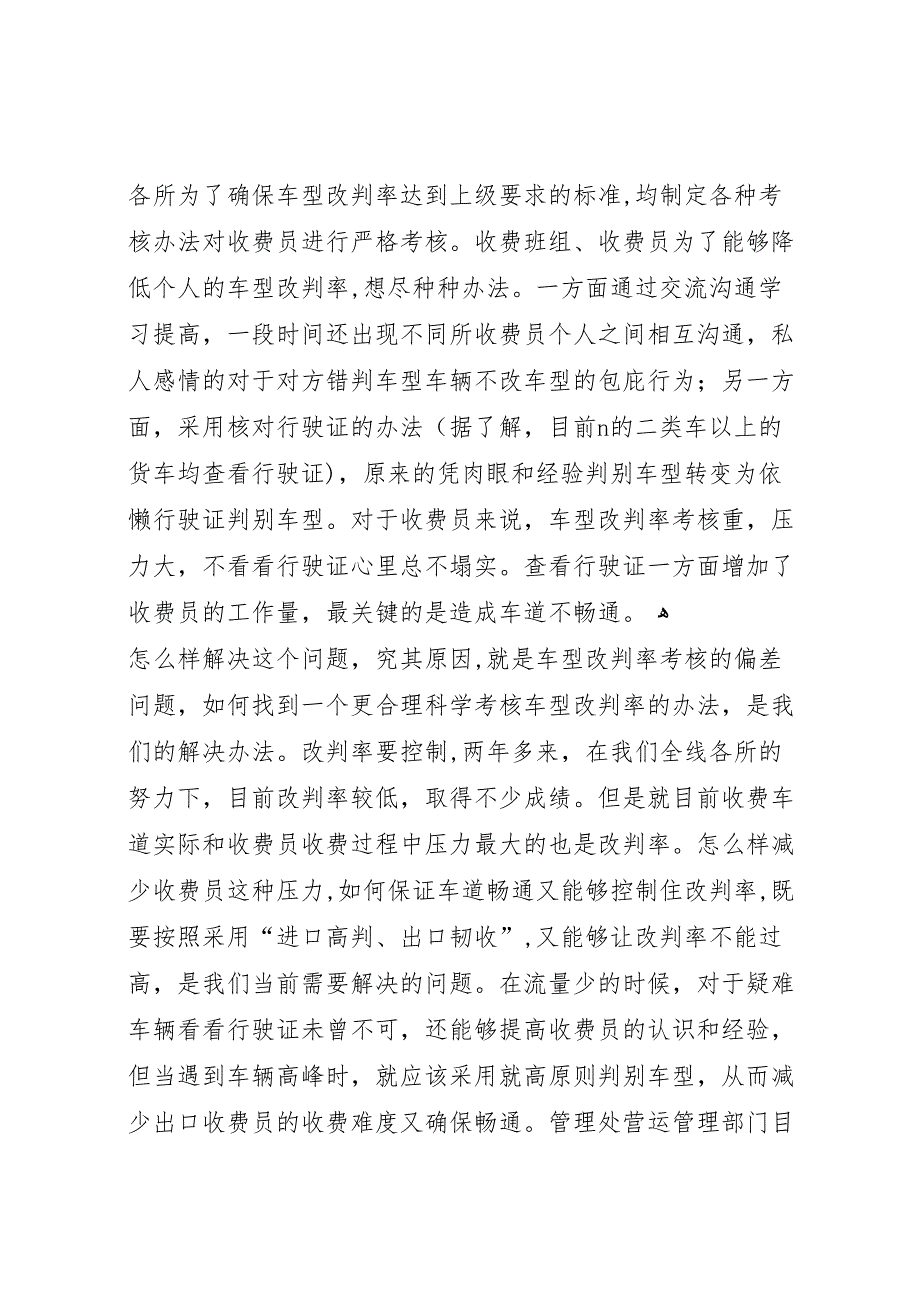 各所为了确保车型改判率达到上级要求的标准,均制定各种考
核办法对收费员进行严格考核。收费班组、收费员为了能够降
低个人的车型改判率,想尽种种办法。一方面通过交流沟通学
习提高，一段时间还出现不同所收费员个人之间相互沟通，私
人感情的对于对方错判车型车辆不改车型的包庇行为；另一方
面，采用核对行驶证的办法（据了解，目前n的二类车以上的
货车均查看行驶证)，原来的凭肉眼和经验判别车型转变为依
懒行驶证判别车型。对于收费员来说，车型改判率考核重，压
力大，不看看行驶证心里总不塌实。查看行驶证一方面增加了
收费员的工作量，最关键的是造成车道不畅通。 ﻫ
怎么样解决这个问题，究其原因,就是车型改判率考核的偏差
问题，如何找到一个更合理科学考核车型改判率的办法，是我
们的解决办法。改判率要控制,两年多来，在我们全线各所的
努力下，目前改判率较低，取得不少成绩。但是就目前收费车
道实际和收费员收费过程中压力最大的也是改判率。怎么样减
少收费员这种压力,如何保证车道畅通又能够控制住改判率,既
要按照采用“进口高判、出口韧收”,又能够让改判率不能过
高，是我们当前需要解决的问题。在流量少的时候，对于疑难
车辆看看行驶证未曾不可，还能够提高收费员的认识和经验，
但当遇到车辆高峰时，就应该采用就高原则判别车型，从而减
少出口收费员的收费难度又确保畅通。管理处营运管理部门目